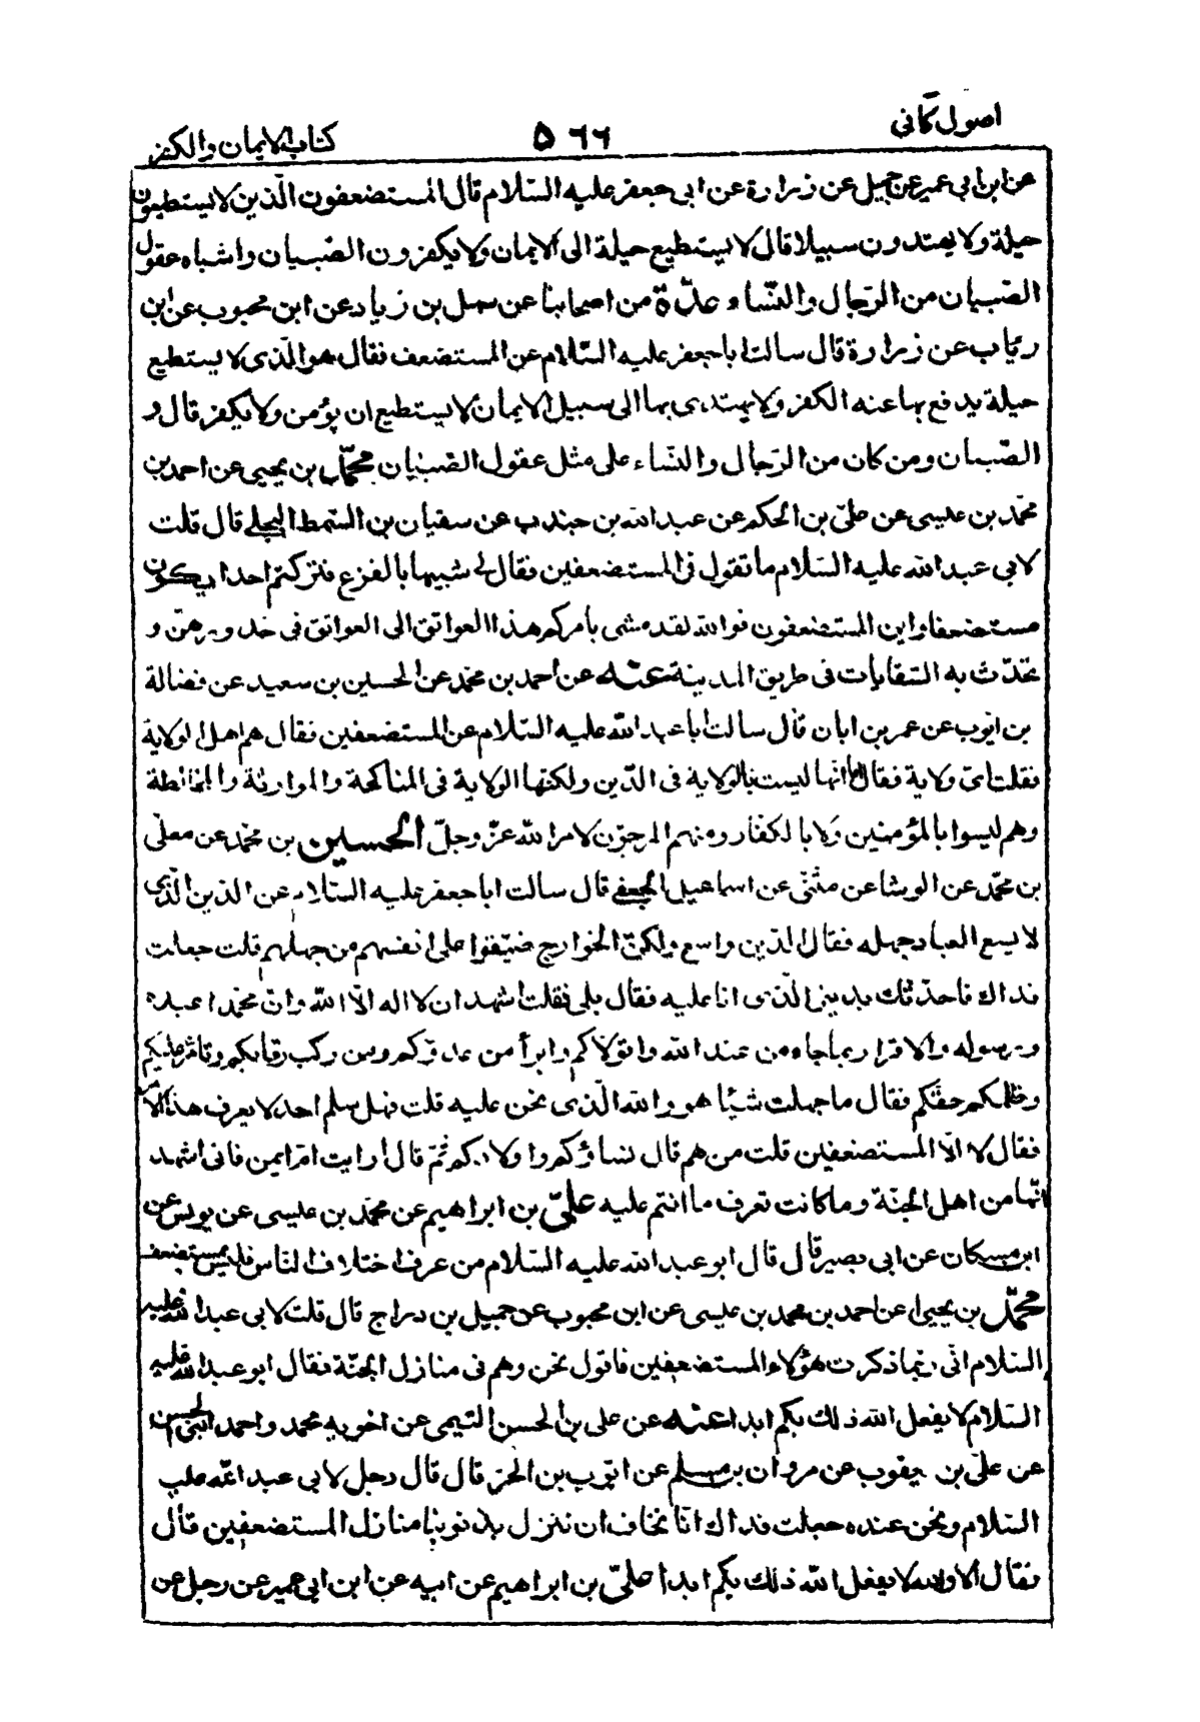 اصول کافی
۵۶۶
کتاب الایمان والکفر
عن ابن ابی عمیر عن جمیل عن زرارة عن ابی جعفر علیه السّلام قال المستضعفون الّذین لا یستطیعون
حیلة ولا یهتدون سبیلا قال لا یستطیع حیلة الی الایمان ولا یکفرون الصّبیان واشباه عقول
الصّبیان من الرّجال والنّساء عدّة من اصحابنا عن سهل بن زیاد عن ابن محبوب عن ابن
رئاب عن زرارة قال سالت ابا جعفر علیه السّلام عن المستضعف فقال هو الّذی لا یستطیع
حیلة یدفع بها عنه الکفر ولا یهتدی بها الی سبیل الایمان لا یستطیع ان یؤمن ولا یکفر قال و
الصّبیان ومن کان من الرّجال والنّساء علی مثل عقول الصّبیان محمّد بن یحیی عن احمد بن
محمّد بن عیسی عن علیّ بن الحکم عن عبد الله بن جندب عن سفیان بن السّمط البجلی قال قلت
لابی عبد الله علیه السّلام ما تقول فی المستضعفین فقال لی شبیها بالفزع فترکتم احدا یکون
مستضعفا واین المستضعفون فوالله لقد مشی بامرکم هذا العواتق الی العواتق فی خدورهنّ و
تحدّث به السّقایات فی طریق المدینة عنه عن احمد بن محمّد عن الحسین بن سعید عن فضالة
بن ایّوب عن عمر بن ابان قال سالت ابا عبد الله علیه السّلام عن المستضعفین فقال هم اهل الولایة
فقلت ایّ ولایة فقال اما انّها لیست بالولایة فی الدّین ولکنّها الولایة فی المناکحة والموارثة والمخالطة
وهم لیسوا بالمؤمنین ولا بالکفّار ومنهم المرجون لامر الله عزّ وجلّ الحسین بن محمّد عن معلّی
بن محمّد عن الوشّا عن مثنّی عن اسماعیل الجعفی قال سالت ابا جعفر علیه السّلام عن الدّین الّذی
لا یسع العباد جهله فقال الدّین واسع ولکنّ الخوارج ضیّقوا علی انفسهم من جهلهم قلت جعلت
فداك فاحدّثك بدینی الّذی انا علیه فقال بلی فقلت اشهد ان لا اله الّا الله وانّ محمّدا عبده
ورسوله والاقرار بما جاء من عند الله واتولّاکم وابرأ من عدوّکم ومن رکب رقابکم وتامّر علیکم
وظلمکم حقّکم فقال ما جهلت شیئا هو والله الّذی نحن علیه قلت فهل سلم احد لا یعرف هذا الامر
فقال لا الّا المستضعفین قلت من هم قال نساؤکم واولادکم ثمّ قال ارایت امّ ایمن فانی اشهد
انّها من اهل الجنّة وما کانت تعرف ما انتم علیه علیّ بن ابراهیم عن محمّد بن عیسی عن یونس عن
ابن مسکان عن ابی بصیر قال قال ابو عبد الله علیه السّلام من عرف اختلاف النّاس فلیس بمستضعف
محمّد بن یحیی عن احمد بن محمد بن عیسی عن ابن محبوب عن جمیل بن دراج قال قلت لابی عبد الله علیه
السّلام انّی ربما ذکرت هؤلاء المستضعفین فاقول نحن وهم فی منازل الجنّة فقال ابو عبد الله علیه
السّلام لا یفعل الله ذلك بکم ابدا عنه عن علی بن الحسن التیمی عن اخویه محمد واحمد ابنی الحسن
عن علیّ بن یعقوب عن مروان بن مسلم عن ایّوب بن الحرّ قال قال رجل لابی عبد الله علیه
السّلام ونحن عنده جعلت فداك انّا نخاف ان ننزل بذنوبنا منازل المستضعفین قال
فقال لا والله لا یفعل الله ذلك بکم ابدا علیّ بن ابراهیم عن ابیه عن ابن ابی عمیر عن رجل عن